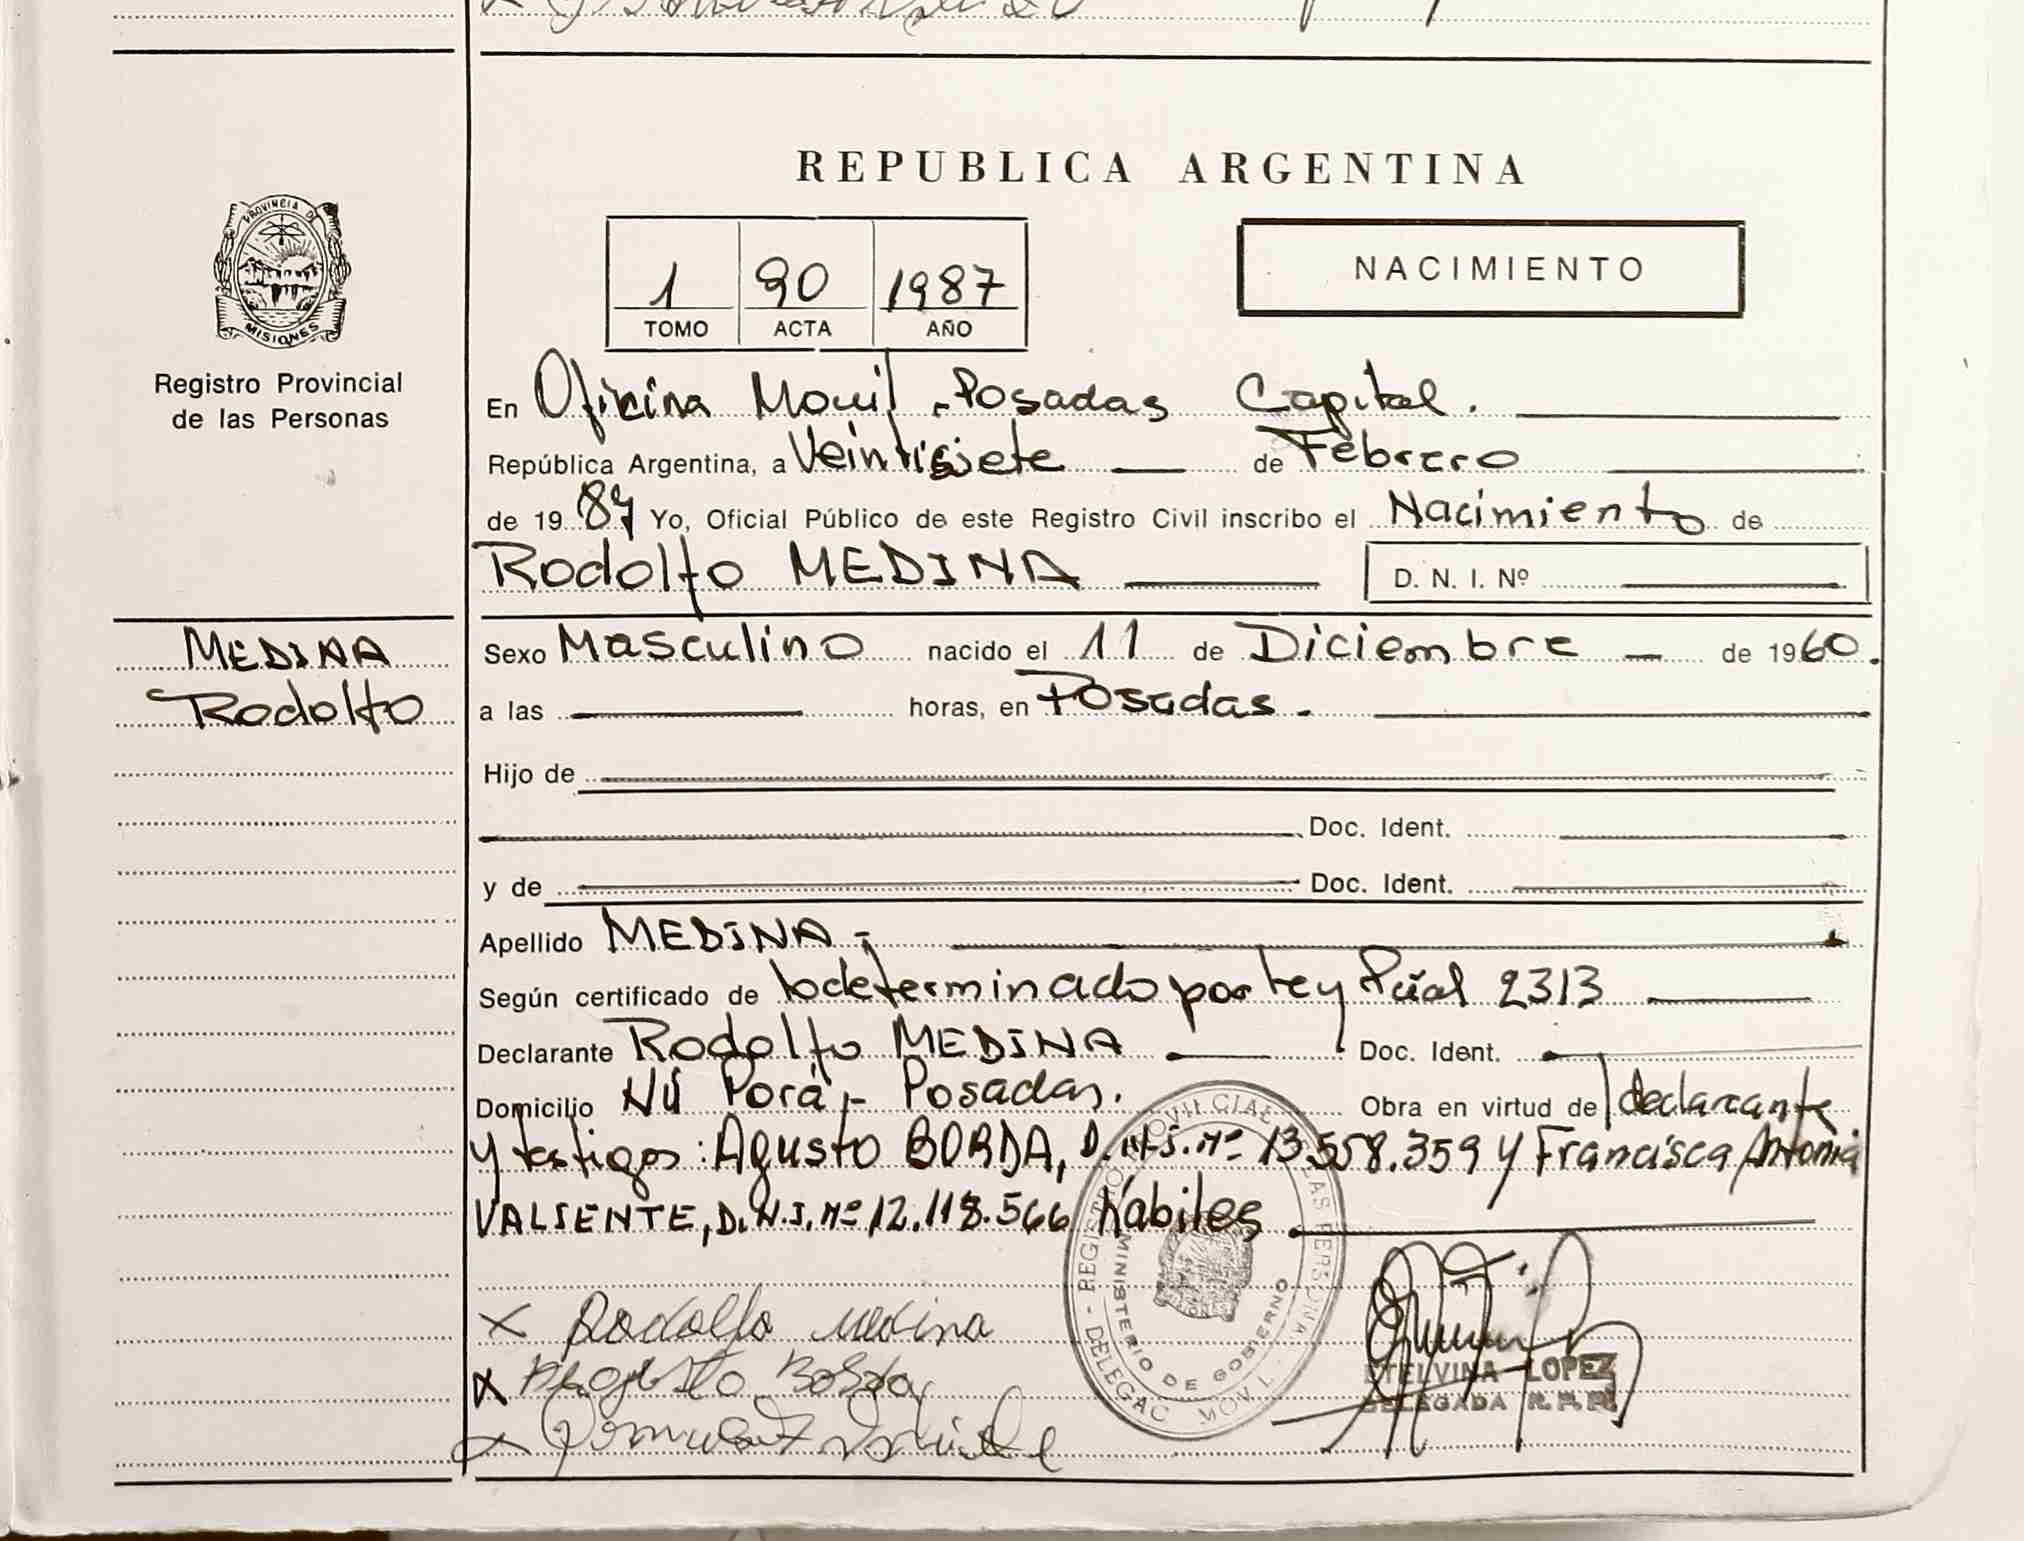 REPUBLICA ARGENTINA
PROVINCIA DE
MISIONES
Registro Provincial
de las Personas
1 90 1987
TOMO ACTA AÑO
NACIMIENTO
En Oficina Movil - Posadas Capital.
República Argentina, a Veintisiete de Febrero
de 1987 Yo, Oficial Público de este Registro Civil inscribo el Nacimiento de
Rodolfo MEDINA D. N. I. Nº
MEDINA
Rodolfo
Sexo Masculino nacido el 11 de Diciembre de 1960.
a las horas, en Posadas.
Hijo de
Doc. Ident.
y de Doc. Ident.
Apellido MEDINA
Según certificado de lo determinado por Ley 2313
Declarante Rodolfo MEDINA Doc. Ident.
Domicilio Ñú Porá - Posadas. Obra en virtud de declarante
y testigos: Agusto BORDA, D.N.I. Nº 13.558.359 y Francisca Antonia
VALIENTE, D.N.I. Nº 12.118.566 hábiles
x Rodolfo medina
x Borda
x
REGISTRO PROVINCIAL DE LAS PERSONAS
MINISTERIO DE GOBIERNO
DELEGAC. MOVIL
ETELVINA LOPEZ
DELEGADA R. P. P.